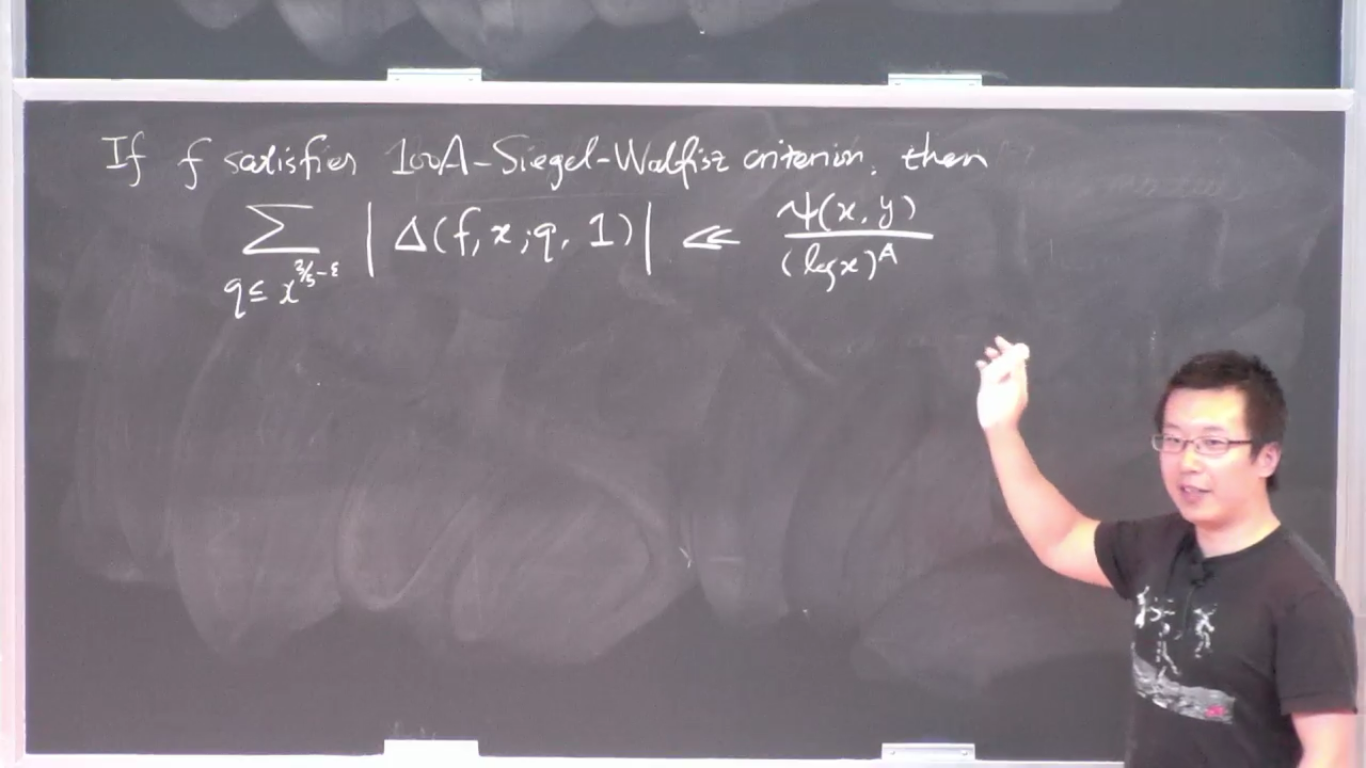 If f satisfies 100A-Siegel-Walfisz criterion, then
∑_{q≤x^{3/5-ε}} |Δ(f,x;q,1)| ≪ Ψ(x,y)/(log x)^A